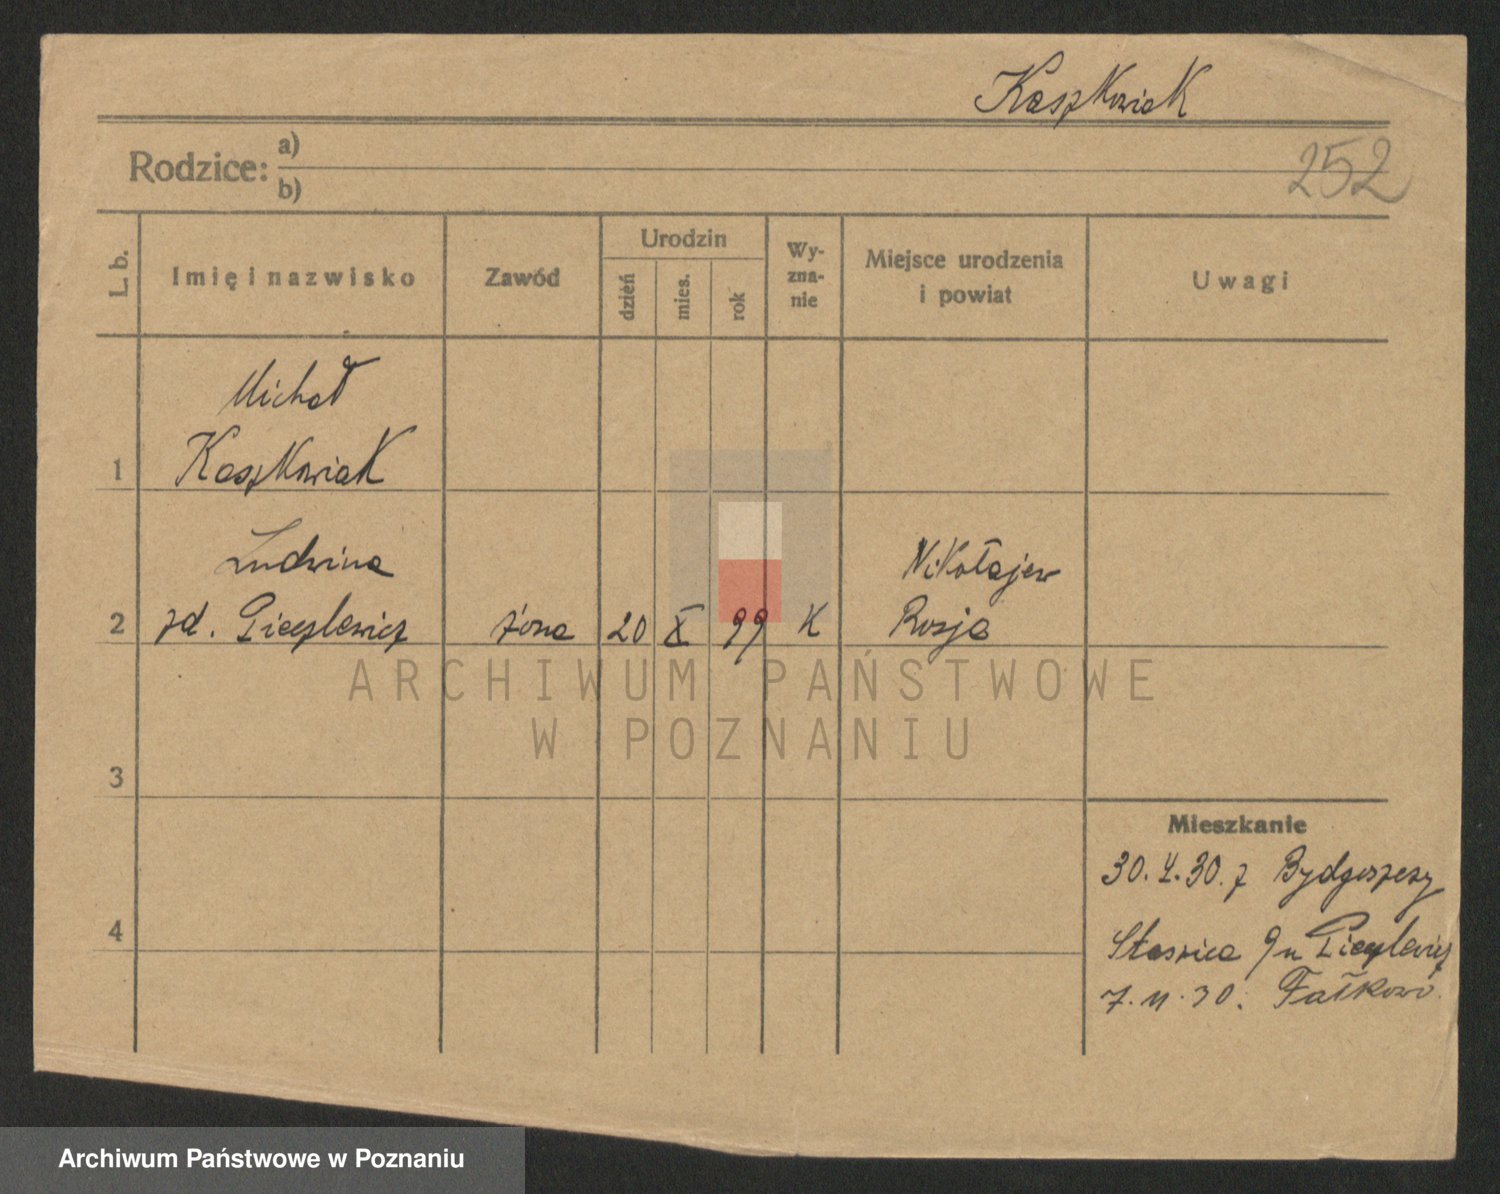 Kaszkowiak
Rodzice: a)
b)
252
L. b.
Imię i nazwisko
Zawód
Urodzin
dzień
mies.
rok
Wy-
zna-
nie
Miejsce urodzenia
i powiat
Uwagi
Michał
1 Kaszkowiak
Ludwina
Nikołajew
2 zd. Gieczlewicz żona 20 X 99 K Rosja
ARCHIWUM PAŃSTWOWE
W POZNANIU
3
Mieszkanie
30. X. 30. z Bydgoszczy
4
Staszica 9 u Gieczlewicz
7. 11. 30. Fałkowo.
Archiwum Państwowe w Poznaniu